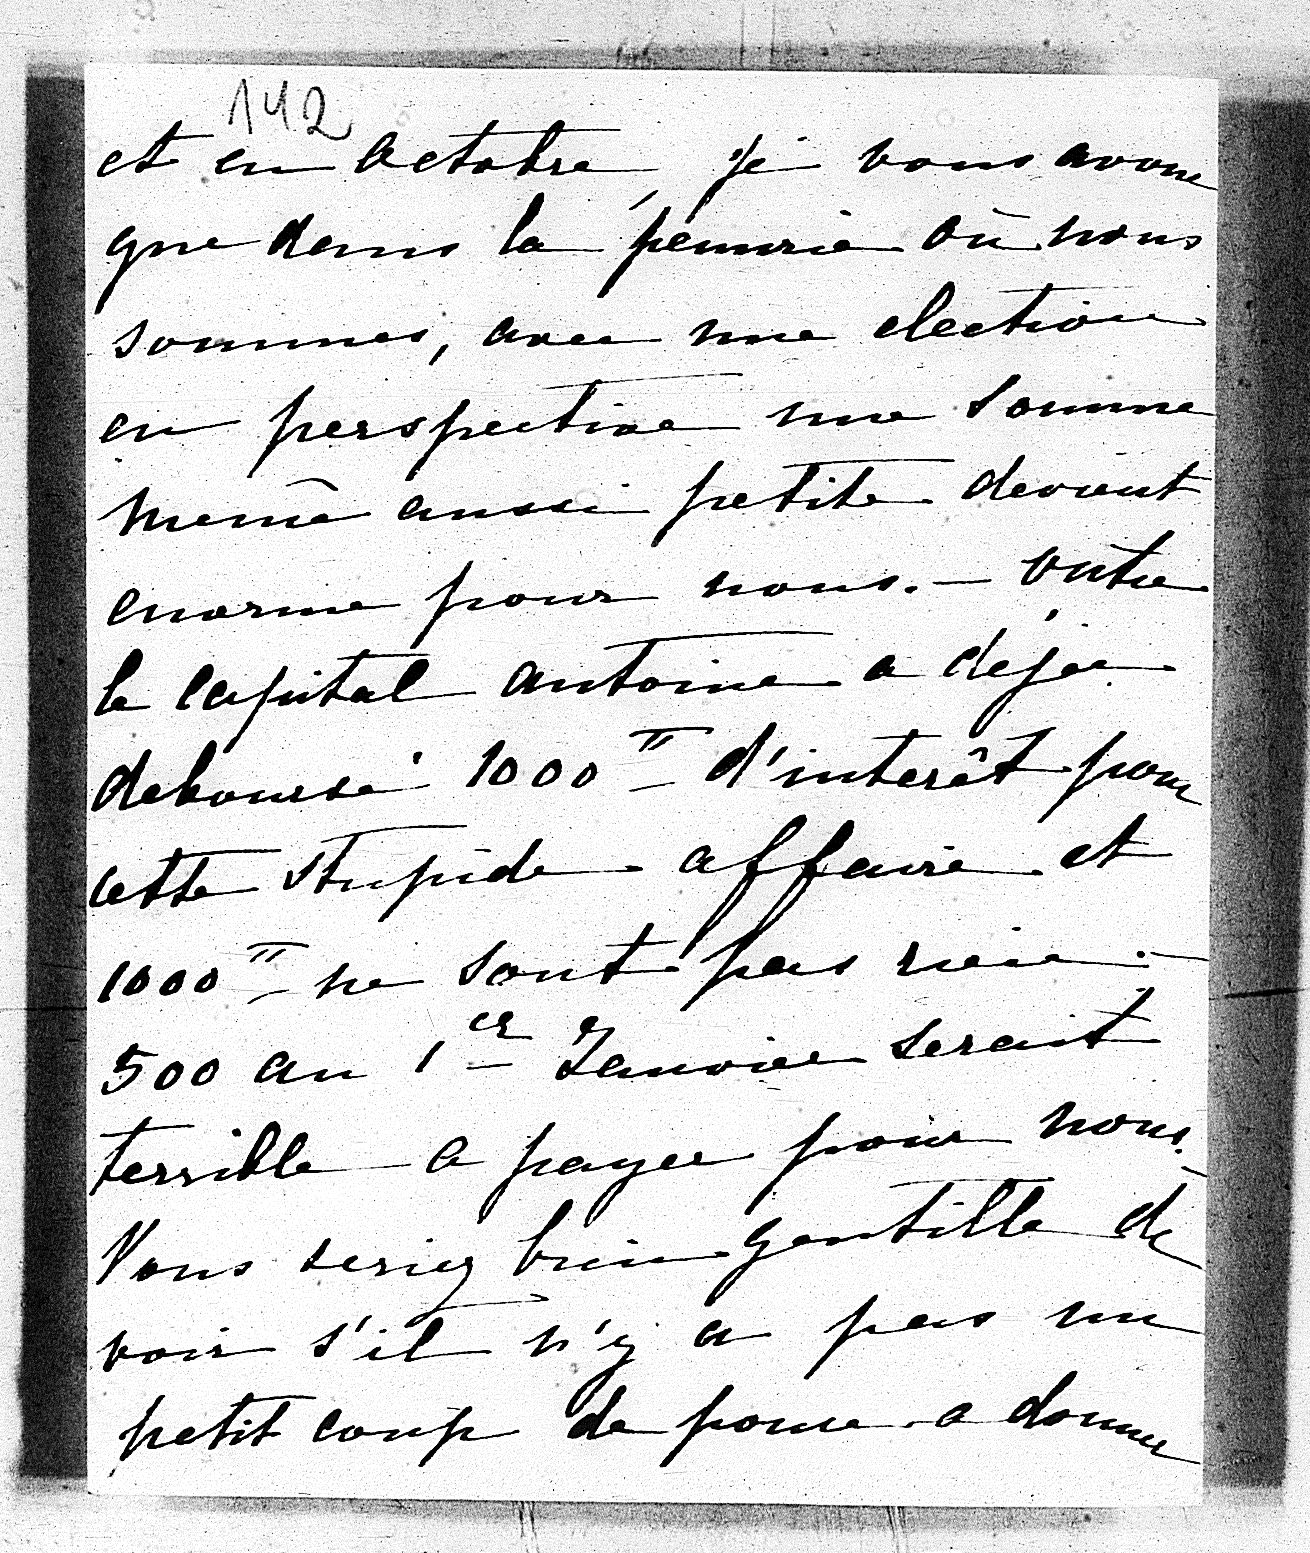 142
et en Octobre, je vous avoue
que dans la pénurie où nous
sommes, avec une election
en perspective une somme
même aussi petite devient
enorme pour nous. — Outre
le capital Antoine a déja
deboursé 1000 ᶠᶠ d'interêt pour
cette stupide affaire et
1000 ᶠᶠ ne sont pas rien. —
500 au 1er Janvier serait
terrible a payer pour nous. —
Vous seriez bien gentille de
voir s'il n'y a pas un
petit coup de pouce a donner